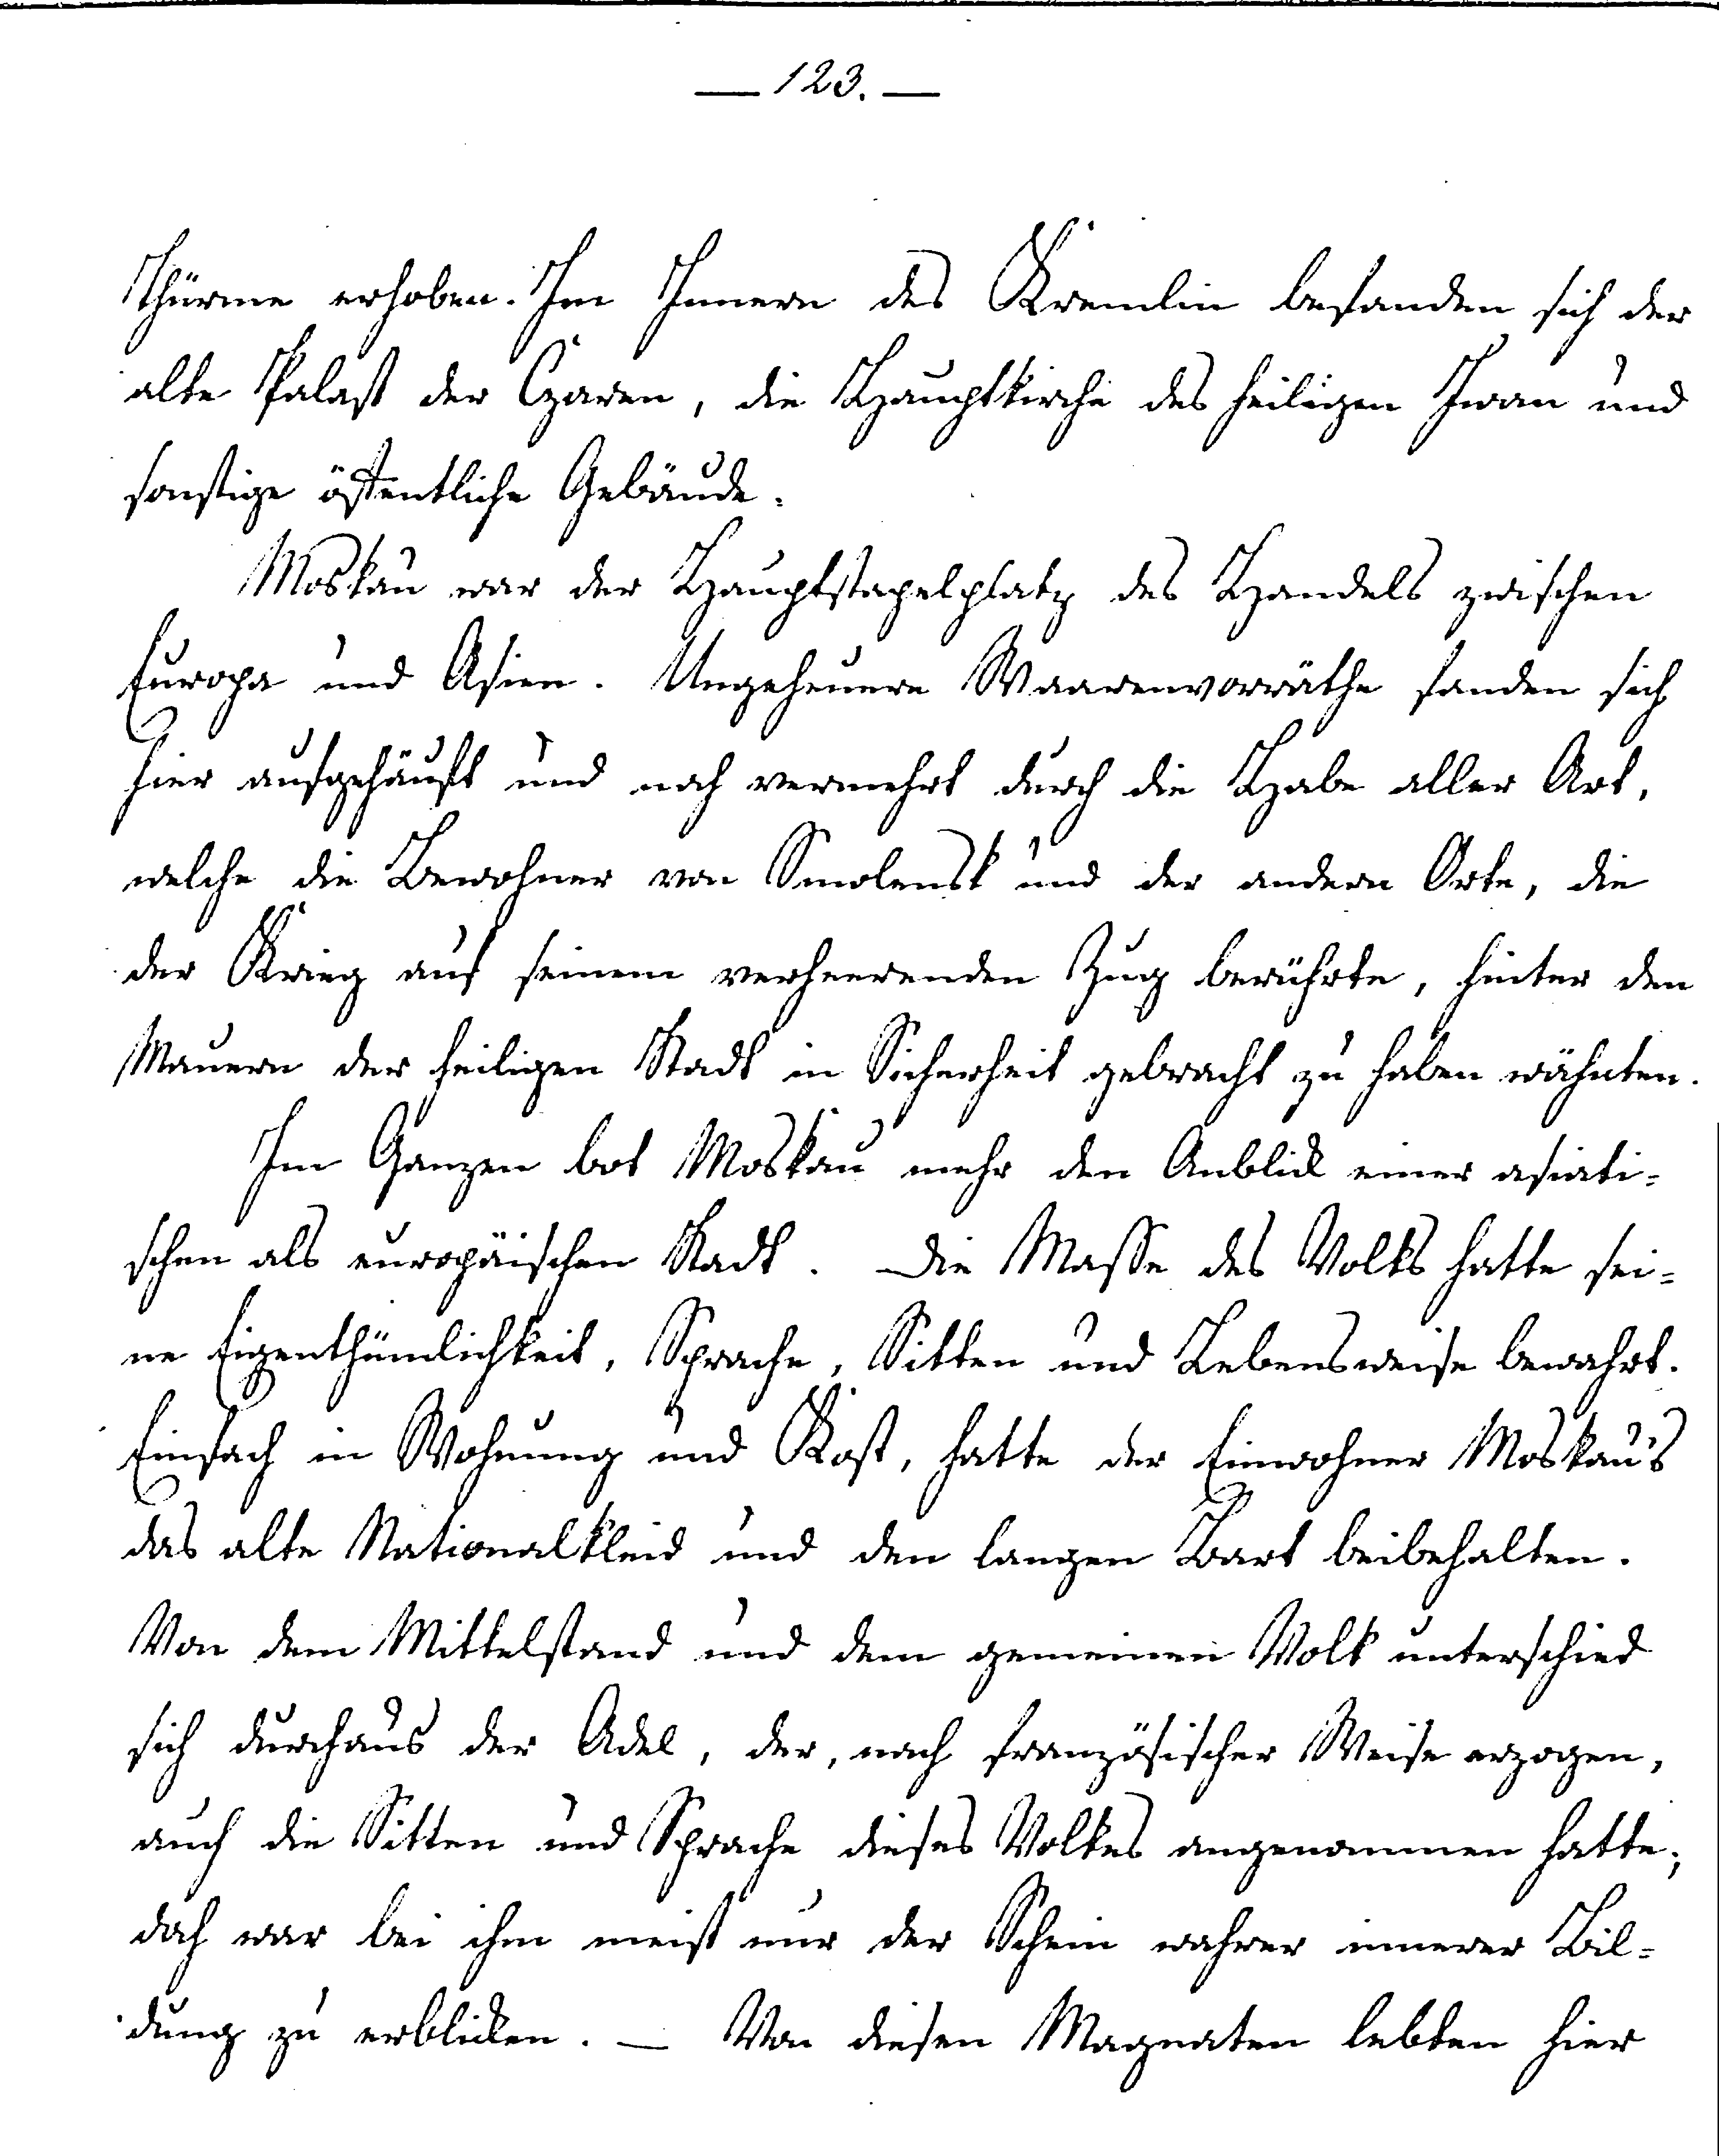 — 123. —
Thürme erhoben. Im Innern des Kremlin befanden sich der
alte Palast der Czaren, die Hauptkirche des heiligen Iwan und
sonstige öffentliche Gebäude.
Moskau war der Hauptstapelplatz des Handels zwischen
Europa und Asien. Ungeheuere Waarenvorräthe fanden sich
hier aufgehäuft und noch vermehrt durch die Habe aller Art,
welche die Bewohner von Smolensk und der andern Orte, die
der Krieg auf seinem verheerenden Zug berührte, hinter den
Mauern der heiligen Stadt in Sicherheit gebracht zu haben wähnten.
Im Ganzen bot Moskau mehr den Anblick einer asiati-
schen als europäischen Stadt. Die Masse des Volks hatte sei-
ne Eigenthümlichkeit, Sprache, Sitten und Lebensweise bewahrt.
Einfach in Wohnung und Kost, hatte der Einwohner Moskau's
das alte Nationalkleid und den langen Bart beibehalten.
Von dem Mittelstand und dem gemeinen Volk unterschied
sich durchaus der Adel, der, nach französischer Weise erzogen,
auch die Sitten und Sprache dieses Volkes angenommen hatte;
doch war bei ihm meist nur der Schein wahrer innerer Bil-
dung zu erblicken. — Von diesen Magnaten lebten hier